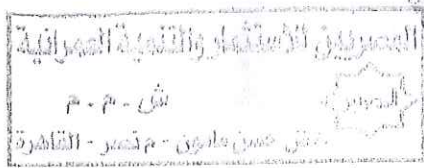 المصريين للاستثمار والتنمية العمرانية
ش . م . م
حسن مأمون - م نصر - القاهرة